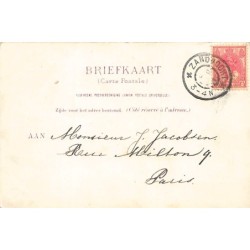 BRIEFKAART
(Carte Postale)
Zijde voor het adres bestemd. (Côté réservé à l'adresse.)
AAN Monsieur J. Jacobsen
Rue Milton 9
Paris